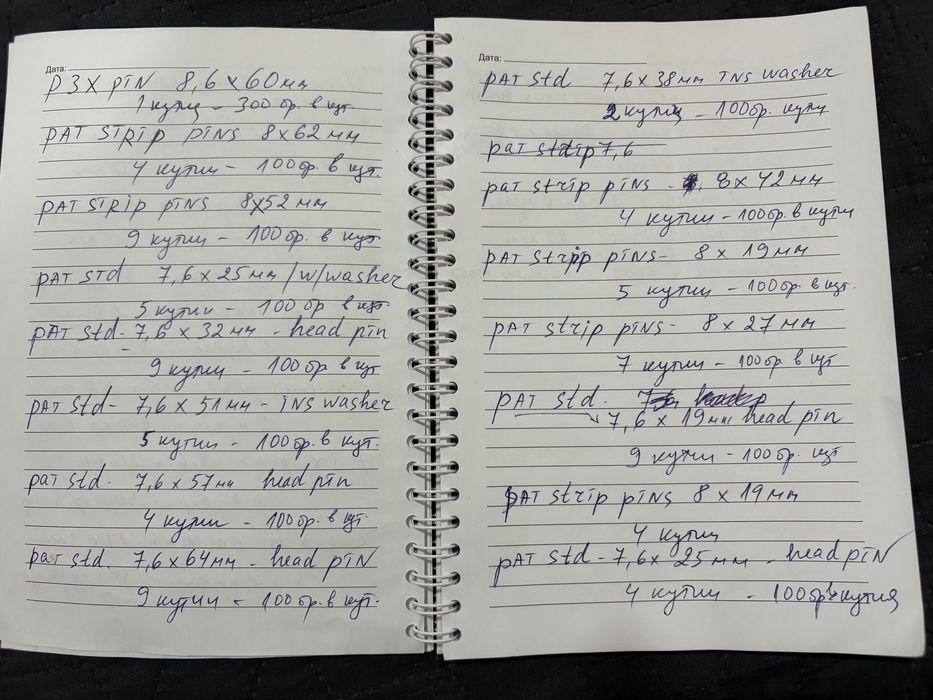 Дата:
P3X PIN 8,6 x 60мм
1 кутия - 300 бр. в кут.
PAT STRIP PINS 8x62 мм
4 кутии - 100бр. в кут.
PAT STRIP PINS 8x52мм
9 кутии - 100бр. в кут
PAT STD 7,6 x 25мм /w/washer
5 кутии - 100 бр в кут.
PAT Std - 7,6 x 32мм - head pin
9 кутии - 100бр в кут
PAT Std - 7,6 x 51мм - INS washer
5 кутии - 100бр. в кут.
pat std. 7,6 x 57мм head pin
4 кутии - 100бр. в кут
pat std. 7,6 x 64мм - head pIN
9 кутии - 100бр. в кут.
Дата:
PAT Std 7,6 x 38мм INS washer
2 кутии - 100бр. кутии
pat strip 7,6
pat strip pINs - 8 x 42мм
4 кутии - 100бр. в кутии
PAT Strip pINs - 8 x 19мм
5 кутии - 100бр. в кут.
PAT strip pINs - 8 x 27мм
7 кутии - 100бр в кут
PAT Std.
7,6 x 19мм head pIN
9 кутии - 100бр. в кут
PAT Strip pINs 8 x 19мм
4 кутии
PAT Std - 7,6 x 25мм - head pIN
4 кутии - 100бр в кутия